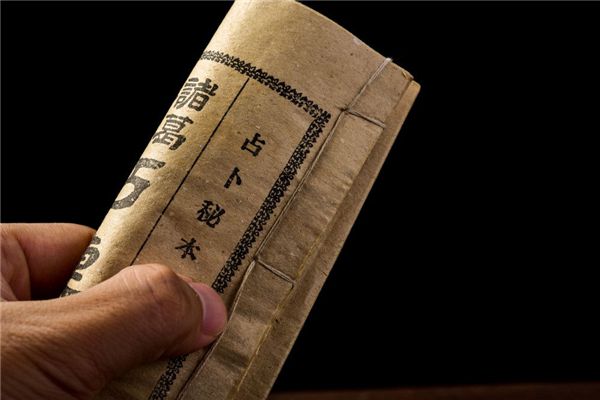 占卜秘本
諸葛